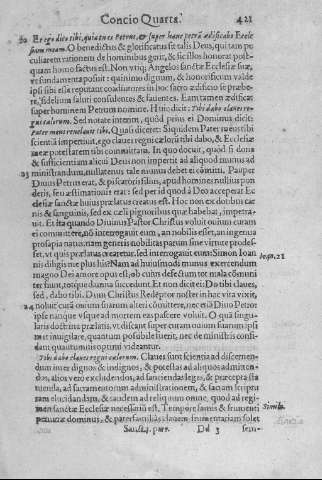 Concio Quarta. 421
22 Et ego dico tibi, quia tu es Petrus, & super hanc petrã ædificabo Eccle
siam meam. O benedictus & glorificatus sit talis Deus, qui tam pe
culiarem rationem de hominibus gerit, & sic illos honorat post-
quam homo factus est. Non vtiq; Angelos sanctæ Ecclesiæ suæ,
vt fundamenta posuit: quinimo dignum, & honorificum valde
ipsi sibi esse reputant coadiutores in hoc sacro ædificio se præbe-
re, fidelium saluti consulentes & fauentes. Eam tamen ædificat
super hominem Petrum nomine. Hinc dicit: Tibi dabo claues reg-
ni cælorum. Sed notate interim, quòd prius ei Dominus dicit:
Pater meus reuelauit tibi. Quasi diceret: Siquidem Pater meus tibi
scientiã impertiuit, ego claues regni cælorũ tibi dabo, & Ecclesiæ
meæ potestatem tibi committam. In quo docuit, quòd si dona
& sufficientiam alicui Deus non impertit ad aliquod munus ad
23 ministrandum, nullatenus tale munus debet ei cõmitti. Pauper
Diuus Petrus erat, & piscatoris filius, apud homines nullius pon
deris, seu æstimationis erat: sed per id quod à Deo acceperat Ec
clesiæ sanctæ huius prælatus creatus est. Hoc non ex dotibus car
nis & sanguinis, sed ex cæli pignoribus quæ habebat, impetra-
uit. Et ita quando Diuinus Pastor Christus voluit ouium curam
ei committere, nõ interrogauit eum, an nobilis esset, an ingenua
prosapia natus: nam generis nobilitas parum sine virtute prodes-
set, vt quis prælatus crearetur. sed interrogauit eum: Simon Ioan
nis diligis me plus his? Nam ad huiusmodi munus exercendum
magno Dei amore opus est, ob cuius defectum tot mala cõmuni
ter fiunt, totque damna succedunt. Et non dicit ei: Do tibi claues,
sed, dabo tibi. Dum Christus Redẽptor noster in hac vita vixit,
24 noluit curã ouium suarum alteri cõmittere, nec eni Diuo Petro:
ipse nanque vsque ad mortem eas pascere voluit. O quã singu-
laris doctrina prælatis, vt discant super curam ouium suarum ipsi
met inuigilare, quantum possibile fuerit, nec de ministris confi-
dant quantumuis optimi videantur.
Tibi dabo claues regni cælorum. Claues sunt scientia ad discernen-
dum inter dignos & indignos, & potestas ad aliquos admitten-
dos, alios verò excludendos, ad sanciendas leges, & præcepta sta
tuenda, ad sacramentorum administrationem, & ad sacram scriptu
ram elucidandam, & tandem ad reliquum omne, quod ad regi-
men sanctæ Ecclesiæ necessariũ est. Tempore famis & frumenti
penuriæ dominus, & paterfamiliâs clauem frumentariam solet
Sanct. 4. part. Dd 3 semi-
Ioan. 21
Simile.